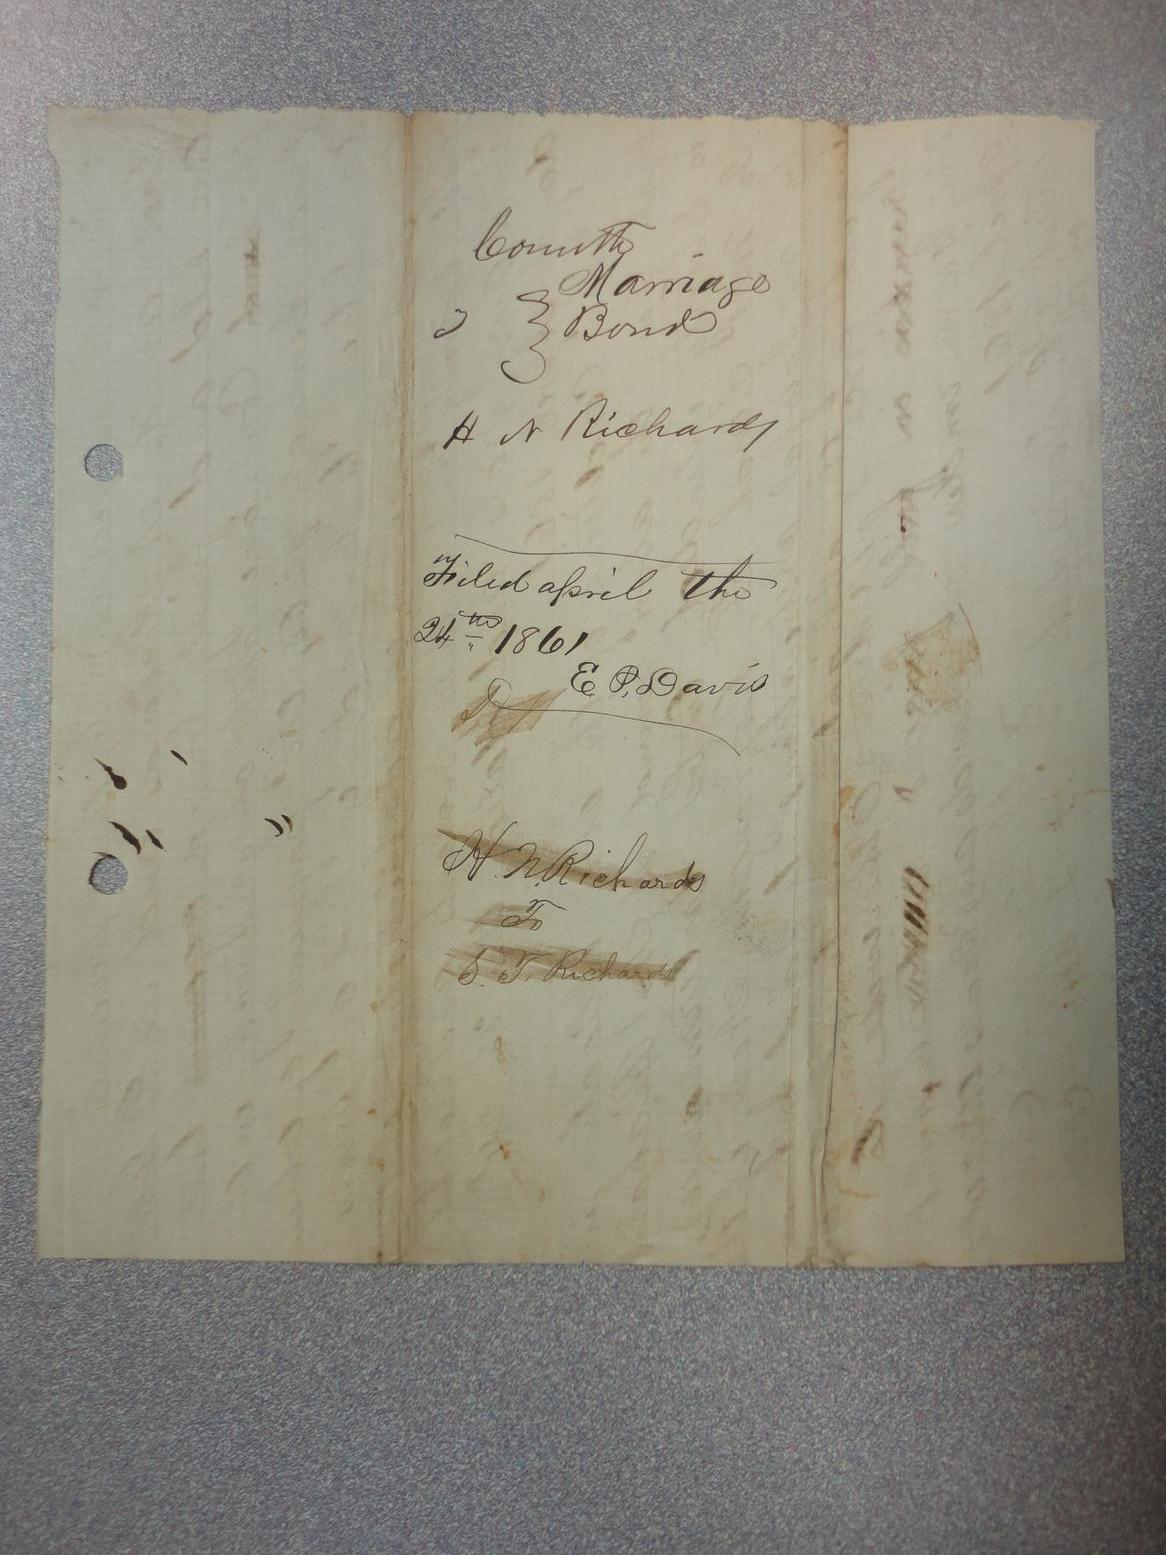 Marriage
Bond
H N Richards
Filed april the
24th 1861
E P. Davis
H. N. Richards
To
S. T. Richards